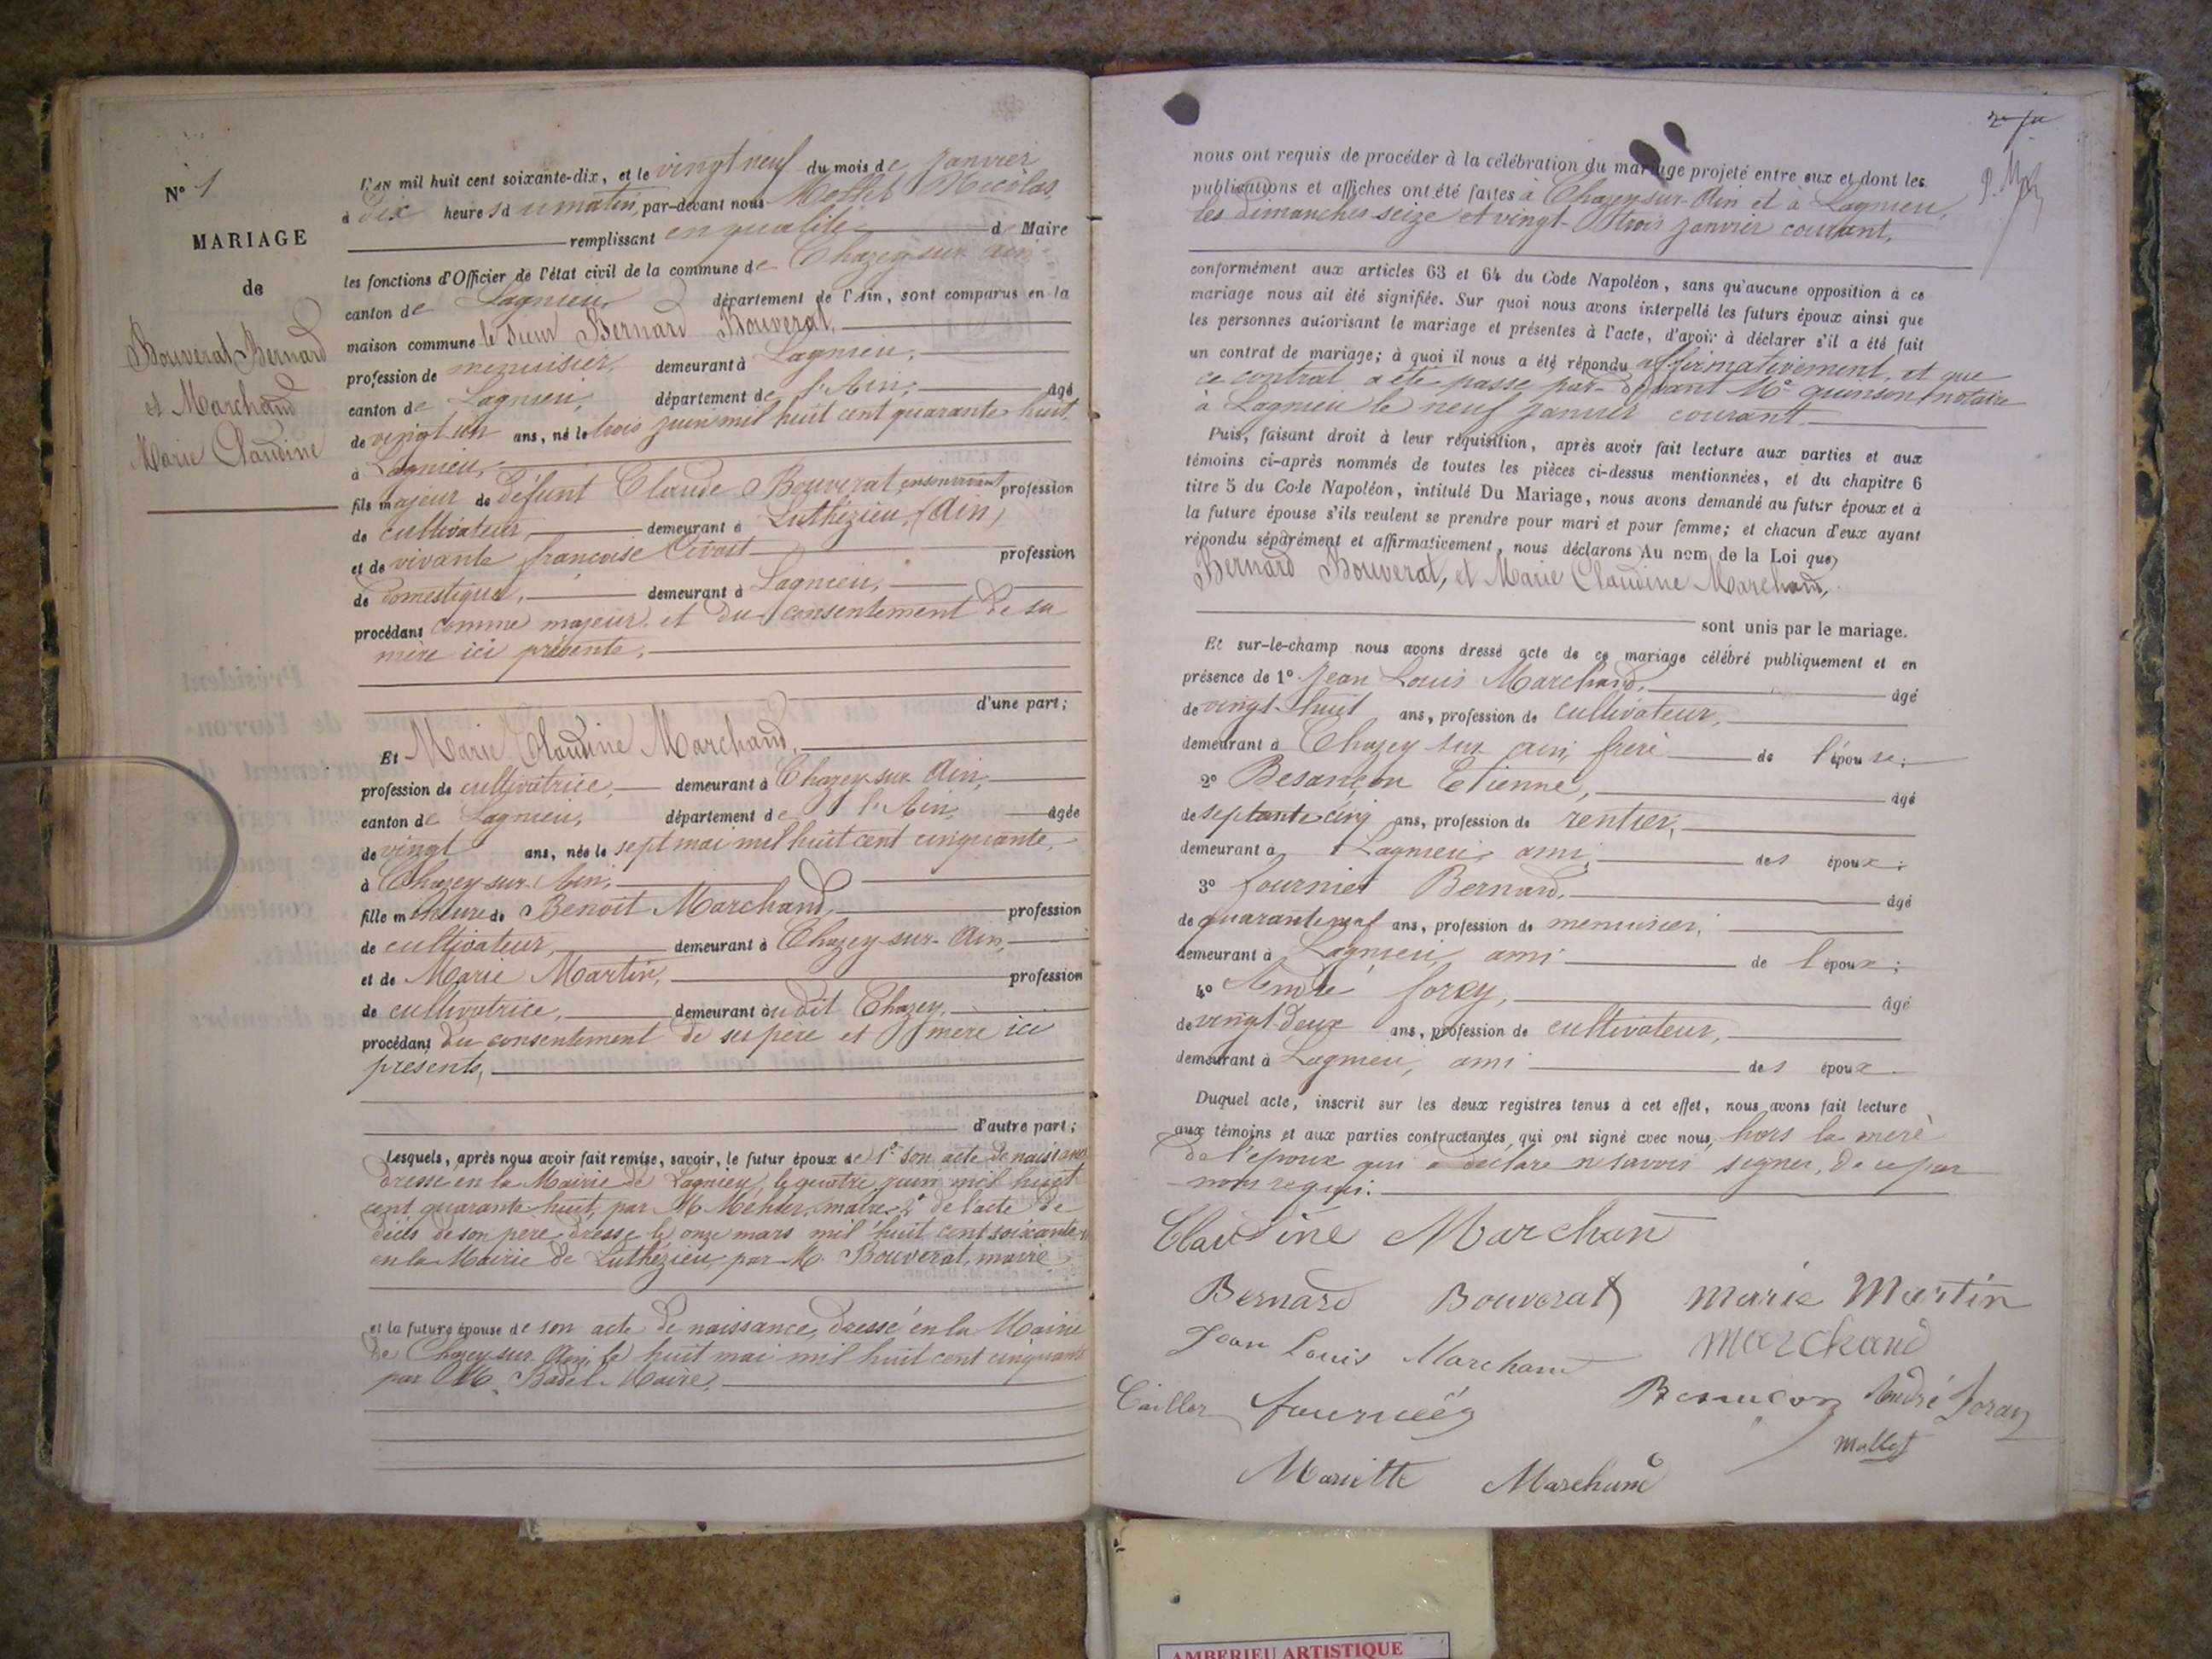 N° 1
MARIAGE
de
Bouverat Bernard
et Marchand
Marie Claudine
L'AN mil huit cent soixante-dix, et le vingt neuf du mois de Janvier
à dix heures du matin, par-devant nous Mollet Nicolas,
remplissant en qualité de Maire
les fonctions d'Officier de l'état civil de la commune de Chazey-sur-Ain
canton de Lagnieu département de l'Ain, sont comparus en la
maison commune le sieur Bernard Bouverat,
profession de menuisier, demeurant à Lagnieu,
canton de Lagnieu, département de l'Ain, âgé
de vingt un ans, né le trois juin mil huit cent quarante huit,
à Lagnieu,
fils majeur de défunt Claude Bouverat, en son vivant profession
de cultivateur, demeurant à Luthézieu, (Ain)
et de vivante françoise profession
de domestique, demeurant à Lagnieu,
procédant comme majeur et du consentement de sa
mère ici présente,
d'une part;
Et Marie Claudine Marchand,
profession de cultivatrice, demeurant à Chazey-sur-Ain,
canton de Lagnieu, département de l'Ain, âgée
de vingt ans, née le sept mai mil huit cent cinquante,
à Chazey-sur-Ain,
fille mineure de Benoît Marchand, profession
de cultivateur, demeurant à Chazey-sur-Ain,
et de Marie Martin, profession
de cultivatrice, demeurant audit Chazey,
procédant du consentement de ses père et mère ici
présents,
d'autre part;
Lesquels, après nous avoir fait remise, savoir, le futur époux de 1° son acte de naissance
dressé en la Mairie de Lagnieu, le quatre juin mil huit
cent quarante huit, par M. maire, 2° de l'acte de
décès de son père dressé le onze mars mil huit cent soixante
en la Mairie de Luthézieu, par M. Bouverat, maire
et la future épouse de son acte de naissance, dressé en la Mairie
de Chazey-sur-Ain, le huit mai mil huit cent cinquante
par M. Badel Maire,
nous ont requis de procéder à la célébration du mariage projeté entre eux et dont les
publications et affiches ont été faites à Chazey-sur-Ain et à Lagnieu,
les dimanches seize et vingt-trois janvier courant,
conformément aux articles 63 et 64 du Code Napoléon, sans qu'aucune opposition à ce
mariage nous ait été signifiée. Sur quoi nous avons interpellé les futurs époux ainsi que
les personnes autorisant le mariage et présentes à l'acte, d'avoir à déclarer s'il a été fait
un contrat de mariage; à quoi il nous a été répondu affirmativement, et que
ce contrat a été passé par-devant Me quinson notaire
à Lagnieu le neuf janvier courant.
Puis, faisant droit à leur réquisition, après avoir fait lecture aux parties et aux
témoins ci-après nommés de toutes les pièces ci-dessus mentionnées, et du chapitre 6
titre 5 du Code Napoléon, intitulé Du Mariage, nous avons demandé au futur époux et à
la future épouse s'ils veulent se prendre pour mari et pour femme; et chacun d'eux ayant
répondu séparément et affirmativement, nous déclarons Au nom de la Loi que
Bernard Bouverat, et Marie Claudine Marchand,
sont unis par le mariage.
Et sur-le-champ nous avons dressé acte de ce mariage célébré publiquement et en
présence de 1° Jean Louis Marchand, âgé
de vingt-huit ans, profession de cultivateur,
demeurant à Chazey sur ain, frère de l'épouse;
2° Besançon Etienne, âgé
de septante cinq ans, profession de rentier,
demeurant à Lagnieu, ami des époux;
3° fournier Bernard, âgé
de quarante neuf ans, profession de menuisier,
demeurant à Lagnieu, ami de l'époux;
4° André foray, âgé
de vingt-deux ans, profession de cultivateur,
demeurant à Lagnieu, ami des époux
Duquel acte, inscrit sur les deux registres tenus à cet effet, nous avons fait lecture
aux témoins et aux parties contractantes, qui ont signé avec nous, hors la mère
de l'époux qui a déclaré ne savoir signer, de ce par
nous requis.
Claudine Marchan
Bernard Bouverat Marie Martin
Jean Louis Marchand Marchand
Besançon André foray
Mollet
Mariette Marchand
AMBERIEU ARTISTIQUE